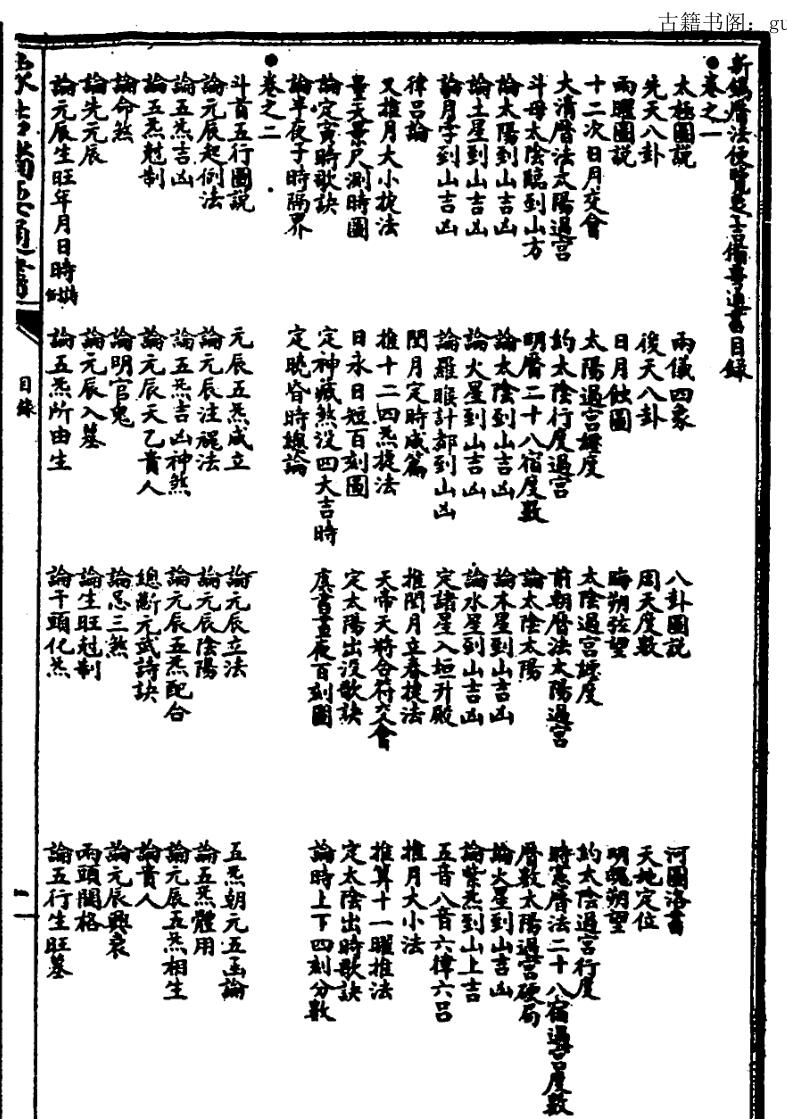 古籍书阁：gu
新鐫曆法便覽象吉備要通書目錄
●卷之一
太極圖説　兩儀四象　八卦圖説　河圖洛書
先天八卦　後天八卦　周天度數　天地定位
兩曜圖説　日月蝕圖　晦朔弦望　明魄朔望
十二次日月交會　太陽過宮纒度　太陰過宮纒度　約太陰過宮行度
大清曆法太陽過宮　約太陰行度過宮　前朝曆法太陽過宮　時憲曆法二十八宿過宮度數
斗母太陰臨到山方　明曆二十八宿度數　論太陰太陽　曆數太陽過宮硬局
論太陽到山吉凶　論太陰到山吉凶　論木星到山吉凶　論火星到山吉凶
論土星到山吉凶　論火星到山吉凶　論水星到山吉凶　論紫炁到山上吉
論月孛到山吉凶　論羅睺計都到山凶　定諸星入垣升殿　五音八音六律六呂
律呂論　閏月定時成篇　推閏月立春捷法　推月大小法
又推月大小捷法　推十二四炁捷法　天帝天將合符交會　推算十一曜推法
量天景尺測時圖　日永日短百刻圖　定太陽出没歌訣　定太陰出時歌訣
論定寅時歌訣　定神藏煞没四大吉時　虞書晝夜百刻圖　論時上下四刻分數
論半夜子時隔界　定曉昏時總論
●卷之二
斗首五行圖説　元辰五炁成立　論元辰立法　五炁朝元五函論
論元辰起例法　論元辰注禄法　論元辰陰陽　論五炁體用
論五炁吉凶　論五炁吉凶神煞　論元辰五炁配合　論元辰五炁相生
論五炁尅制　論元辰天乙貴人　總斷元武詩訣　論貴人
論命煞　論明官鬼　論忌三煞　論元辰興衰
論先元辰　論元辰入墓　論生旺尅制　兩頭関格
論元辰生旺年月日時　論五炁所由生　論干頭化炁　論五行生旺墓
目錄